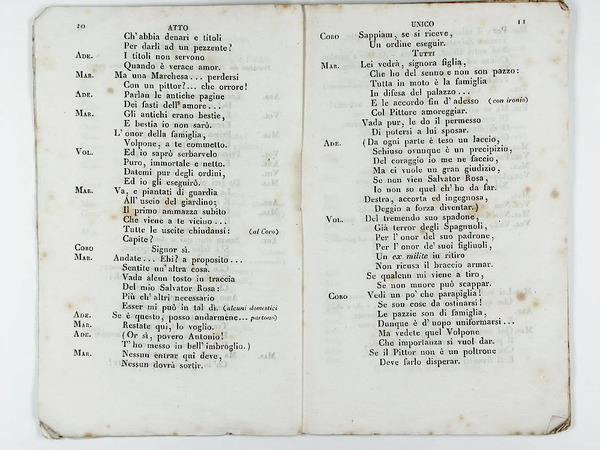 10 ATTO
Ch' abbia denari e titoli
Per darli ad un pezzente?
ADE. I titoli non servono
Quando è verace amor.
MAR. Ma una Marchesa... perdersi
Con un pittor?... che orrore!
ADE. Parlan le antiche pagine
Dei fasti dell' amore...
MAR. Gli antichi erano bestie,
E bestia io non sarò.
L' onor della famiglia,
Volpone, a te commetto.
VOL. Ed io saprò serbarvelo
Puro, immortale e netto.
Datemi pur degli ordini,
Ed io gli eseguirò.
MAR. Va, e piantati di guardia
All' uscio del giardino;
Il primo ammazza subito
Che viene a te vicino...
Tutte le uscite chiudansi: (al Coro)
Capite?
CORO Signor sì.
MAR. Andate... Ehi? a proposito...
Sentite un' altra cosa.
Vada alcun tosto in traccia
Del mio Salvator Rosa:
Più ch' altri necessario
Esser mi può in tal dì. (alcuni domestici
ADE. Se è questo, posso andarmene... partono)
MAR. Restate qui, lo voglio.
ADE. (Or sì, povero Antonio!
T' ho messo in bell' imbroglio.)
MAR. Nessun entrar qui deve,
Nessun dovrà sortir.
UNICO 11
CORO Sappiam, se si riceve,
Un ordine eseguir.
TUTTI
MAR. Lei vedrà, signora figlia,
Che ho del senno e non son pazzo:
Tutta in moto è la famiglia
In difesa del palazzo...
E le accordo fin d' adesso (con ironia)
Col Pittore amoreggiar.
Vada pur, le do il permesso
Di potersi a lui sposar.
ADE. (Da ogni parte è teso un laccio,
Schiuso ovunque è un precipizio,
Del coraggio io me ne faccio,
Ma ci vuole un gran giudizio,
Se non vien Salvator Rosa,
Io non so quel ch' ho da far.
Destra, accorta ed ingegnosa,
Deggio a forza diventar.)
VOL. Del tremendo suo spadone,
Già terror degli Spagnuoli,
Per l' onor del suo padrone,
Per l' onor de' suoi figliuoli,
Un ex milite in ritiro
Non ricusa il braccio armar.
Se qualcun mi viene a tiro,
Se non muore può scappar.
CORO Vedi un po' che parapiglia!
Se son cose da ostinarsi!
Le pazzie son di famiglia,
Dunque è d' uopo uniformarsi...
Ma vedete quel Volpone
Che importanza si vuol dar.
Se il Pittor non è un poltrone
Deve farlo disperar.